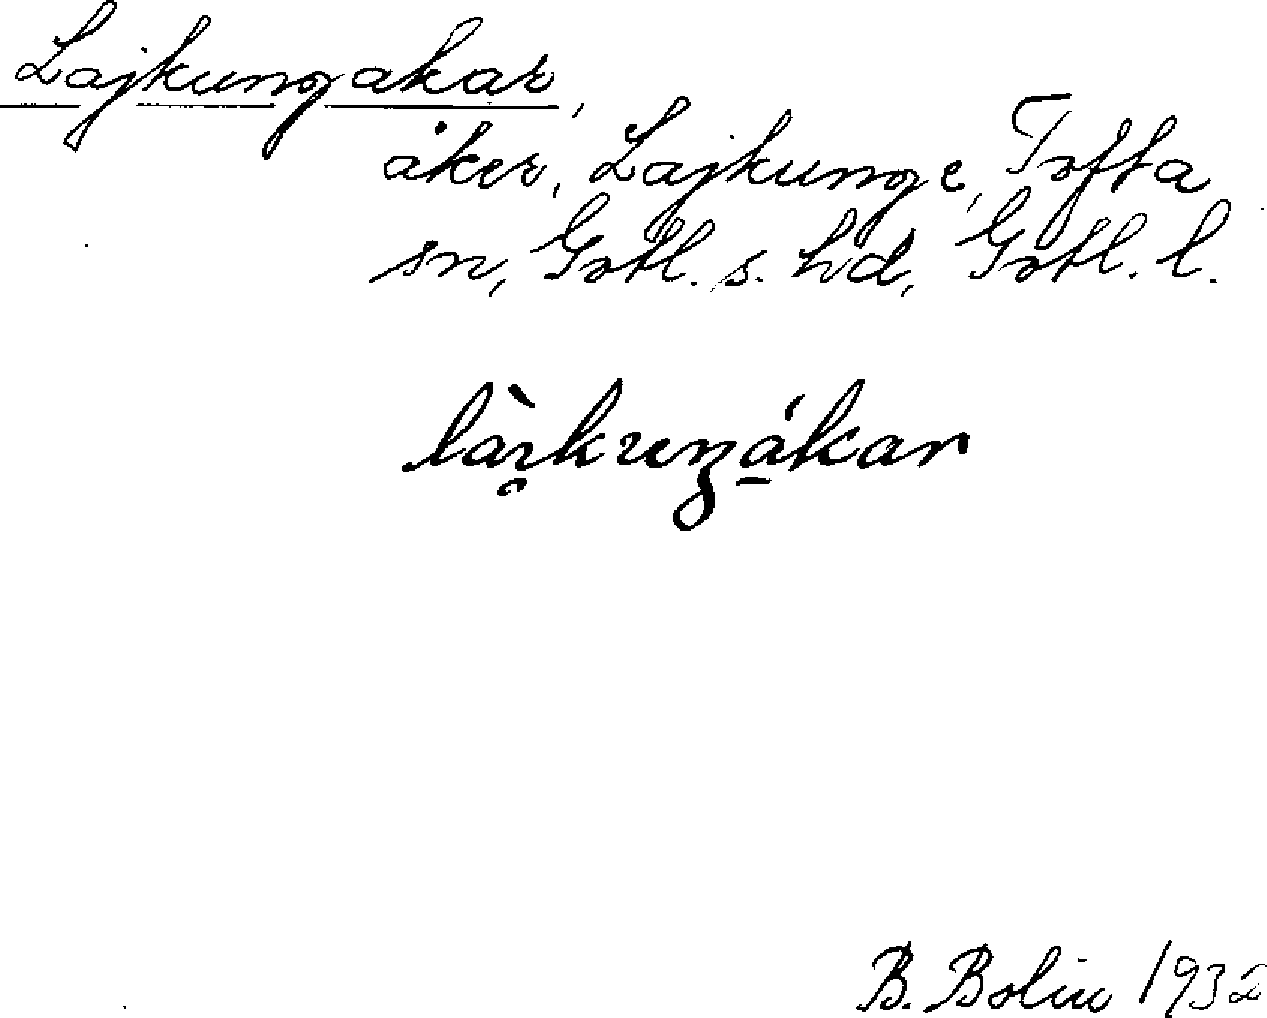 Lajkungakar,
åker, Lajkunge, Tofta
sn, Gotl. s. hd, Gotl. l.
B. Bolin 1932